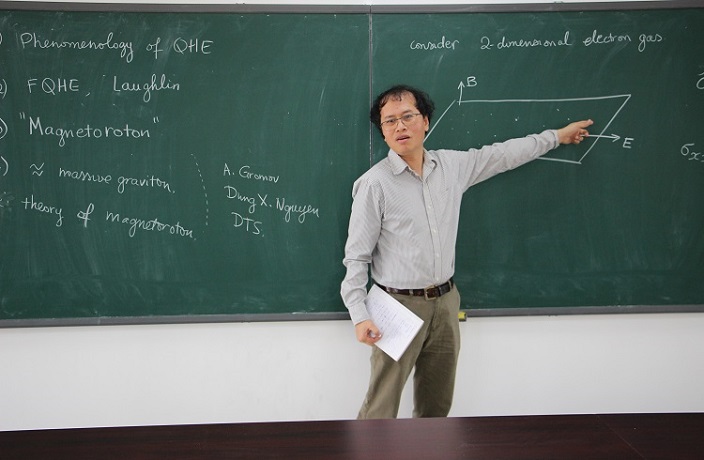 ) Phenomenology of QHE
2) FQHE, Laughlin
) "Magnetoroton"
) ≈ massive graviton.
theory of magnetoroton.
A. Gromov
Dung X. Nguyen
DTS.
consider 2-dimensional electron gas
B
E
σx